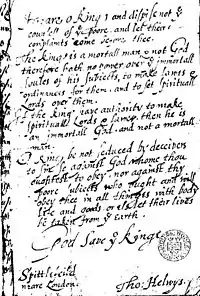 Heare o King, and dispise not ye
counsell of ye poore, and let their
complaints come before thee.
The King is a mortall man, & not God
therefore hath no power over ye immortall
soules of his subiects, to make lawes &
ordinances for them, and to set spirituall
Lords over them.
If the King have authority to make
spirituall Lords & lawes, then he is
an immortall God, and not a mortall
man.
O King, be not seduced by deceivers
to sin so against God whome thou
oughtest to obey, nor against thy
poore subiects who ought and will
obey thee in all things with body
life and goods, or els let their lives
be taken from ye earth.
God save ye King
Spittlefeild
neare London.
Tho: Helwys.